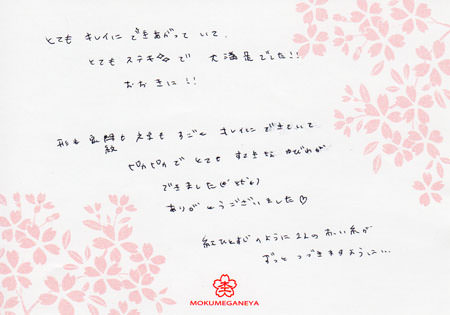 とても キレイに できあがって いて、
とても ステキ で 大満足でした!!
おおきに!!
形も 模 も 文字も すごく キレイに できていて
ピカピカで とても すてきな ゆびわが
できました
ありがとうございました♡
紅ひとすじ のように 2人の あかい 糸が
ずっと つづきますように…
杢
MOKUMEGANEYA